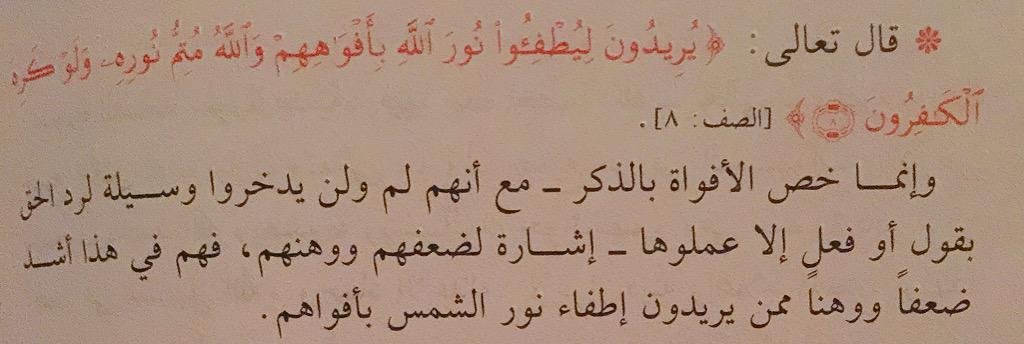 ❋ قال تعالى: ﴿يُرِيدُونَ لِيُطْفِـُٔوا۟ نُورَ ٱللَّهِ بِأَفْوَٰهِهِمْ وَٱللَّهُ مُتِمُّ نُورِهِۦ وَلَوْ كَرِهَ
ٱلْكَـٰفِرُونَ ٨﴾ [الصف: ٨].
وإنما خص الأفواة بالذكر ـ مع أنهم لم ولن يدخروا وسيلة لرد الحق
بقول أو فعلٍ إلا عملوها ـ إشارة لضعفهم ووهنهم، فهم في هذا أشد
ضعفاً ووهناً ممن يريدون إطفاء نور الشمس بأفواهم.